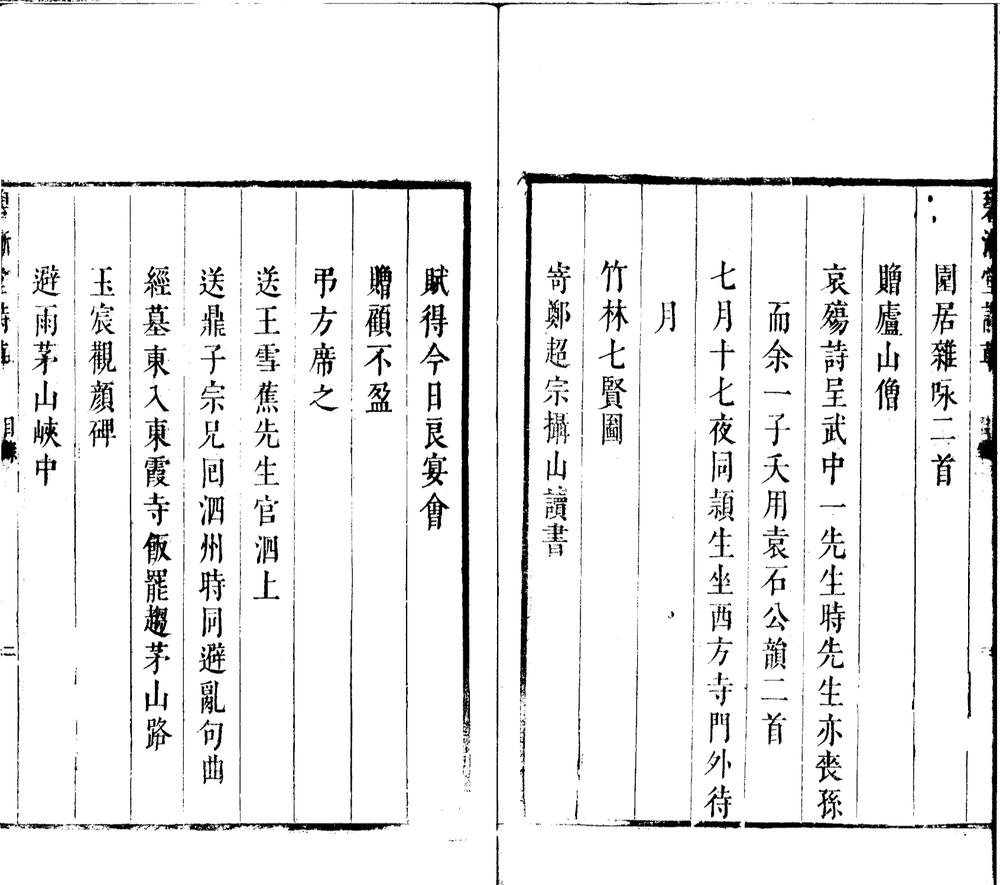 園居雜咏二首
贈廬山僧
哀殤詩呈武中一先生時先生亦喪孫
而余一子夭用袁石公韻二首
七月十七夜同頴生坐西方寺門外待
月
竹林七賢圖
寄鄭超宗攝山讀書
賦得今日良宴會
贈顧不盈
弔方席之
送王雪蕉先生官泗上
送鼎子宗兄囘泗州時同避亂句曲
經墓東入東霞寺飯罷趨茅山路
玉宸觀顔碑
避雨茅山峽中
堂詩 目錄 二